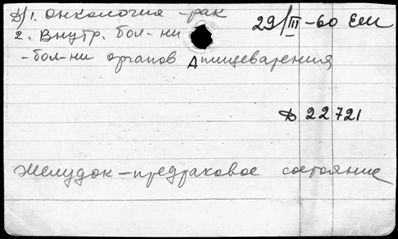 1. Онкология - рак
29/III-60 Ем
2. Внутр. бол-ни
- бол-ни органов пищеварения
Д 22721
Желудок - предраковое состояние